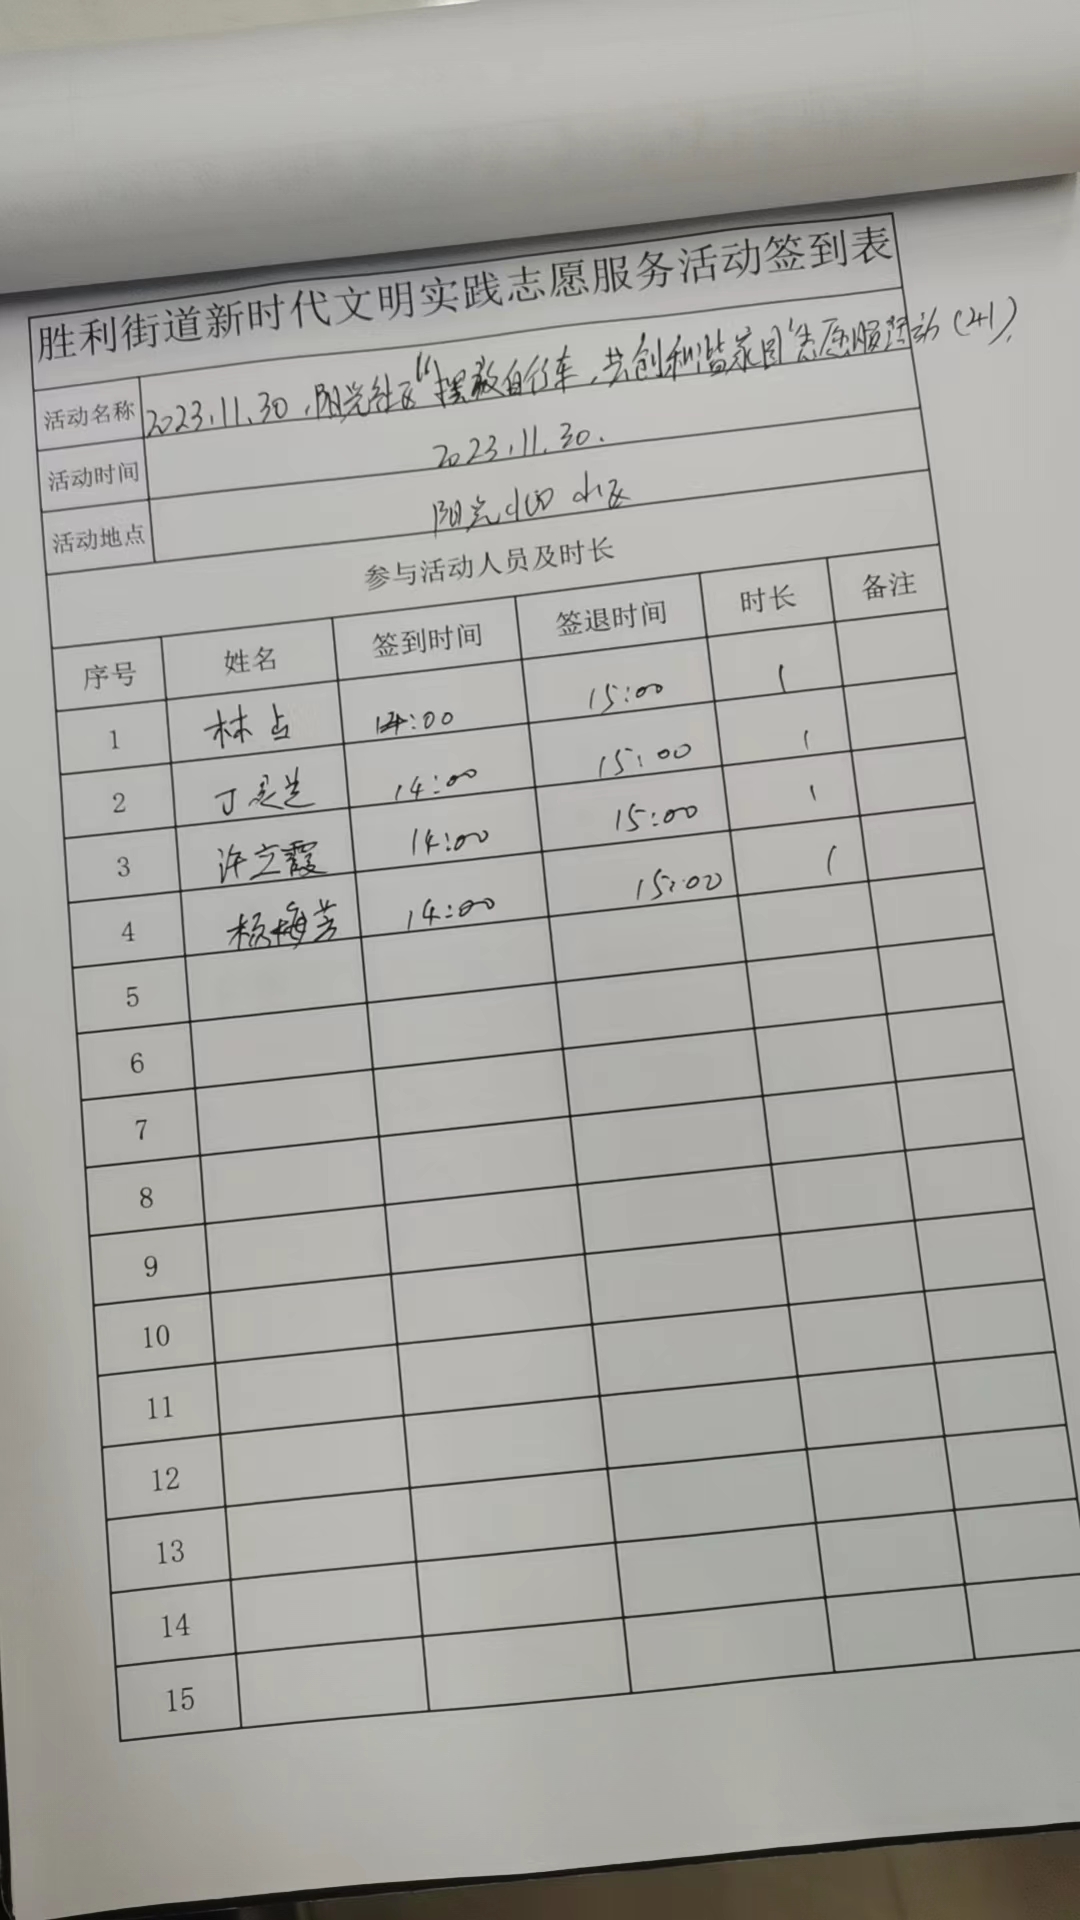 胜利街道新时代文明实践志愿服务活动签到表
活动名称 2023.11.30.阳光社区“摆放自行车,共创和谐家园”志愿服务活动(41).
活动时间 2023.11.30.
活动地点 阳光 小区
参与活动人员及时长
序号 姓名 签到时间 签退时间 时长 备注
1 林占 14:00 15:00 1
2 丁 14:00 15:00 1
3 许立霞 14:00 15:00 1
4 杨梅芳 14:00 15:00 1
5
6
7
8
9
10
11
12
13
14
15